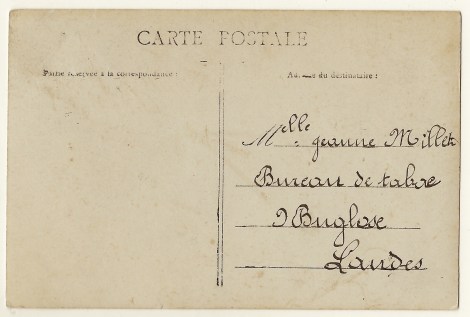 CARTE POSTALE
Partie réservée à la correspondance :
Adresse du destinataire :
Melle Jeanne Millet
Bureau de tabac
Buglose
Landes